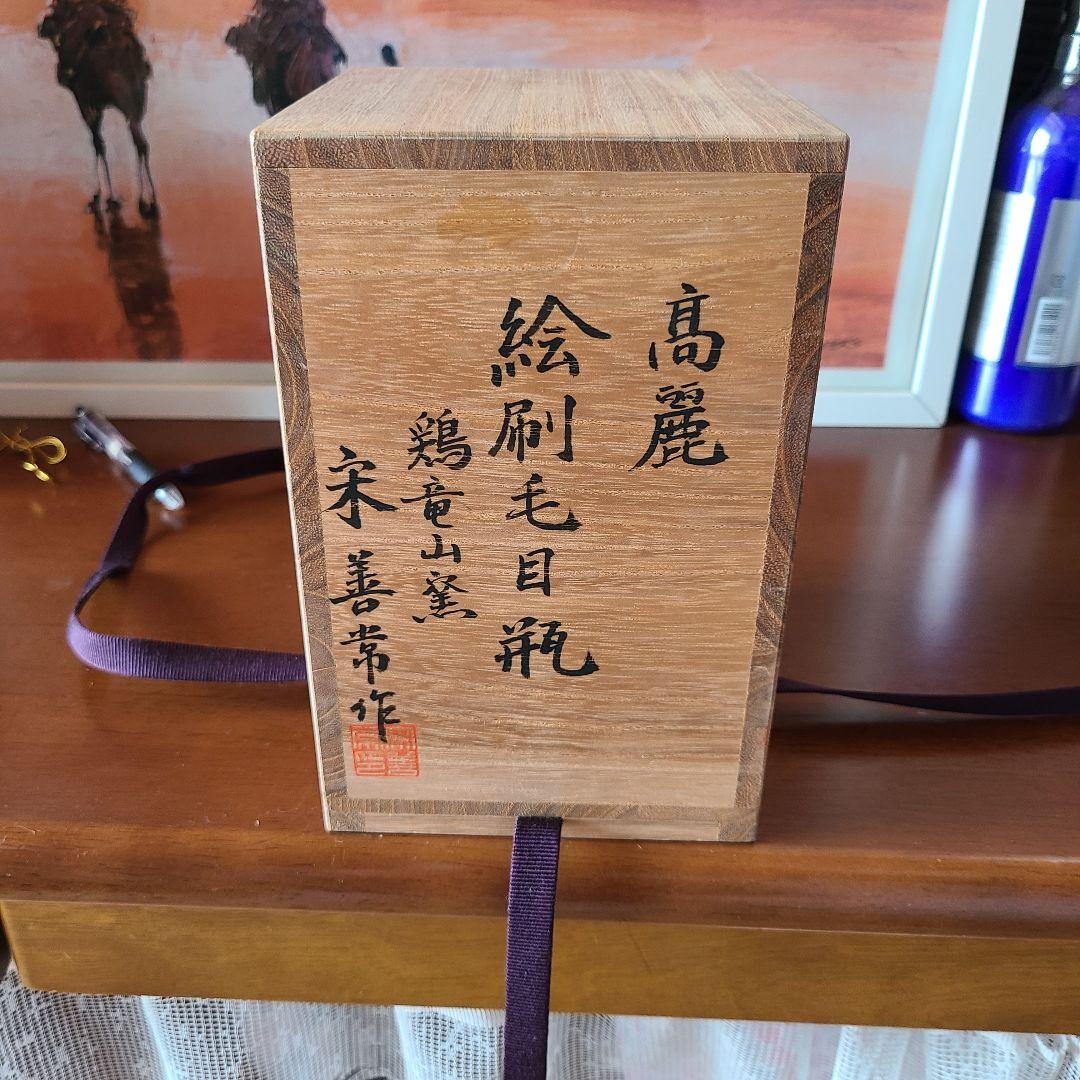 高麗
絵刷毛目瓶
鶏竜山窯
宋善常作